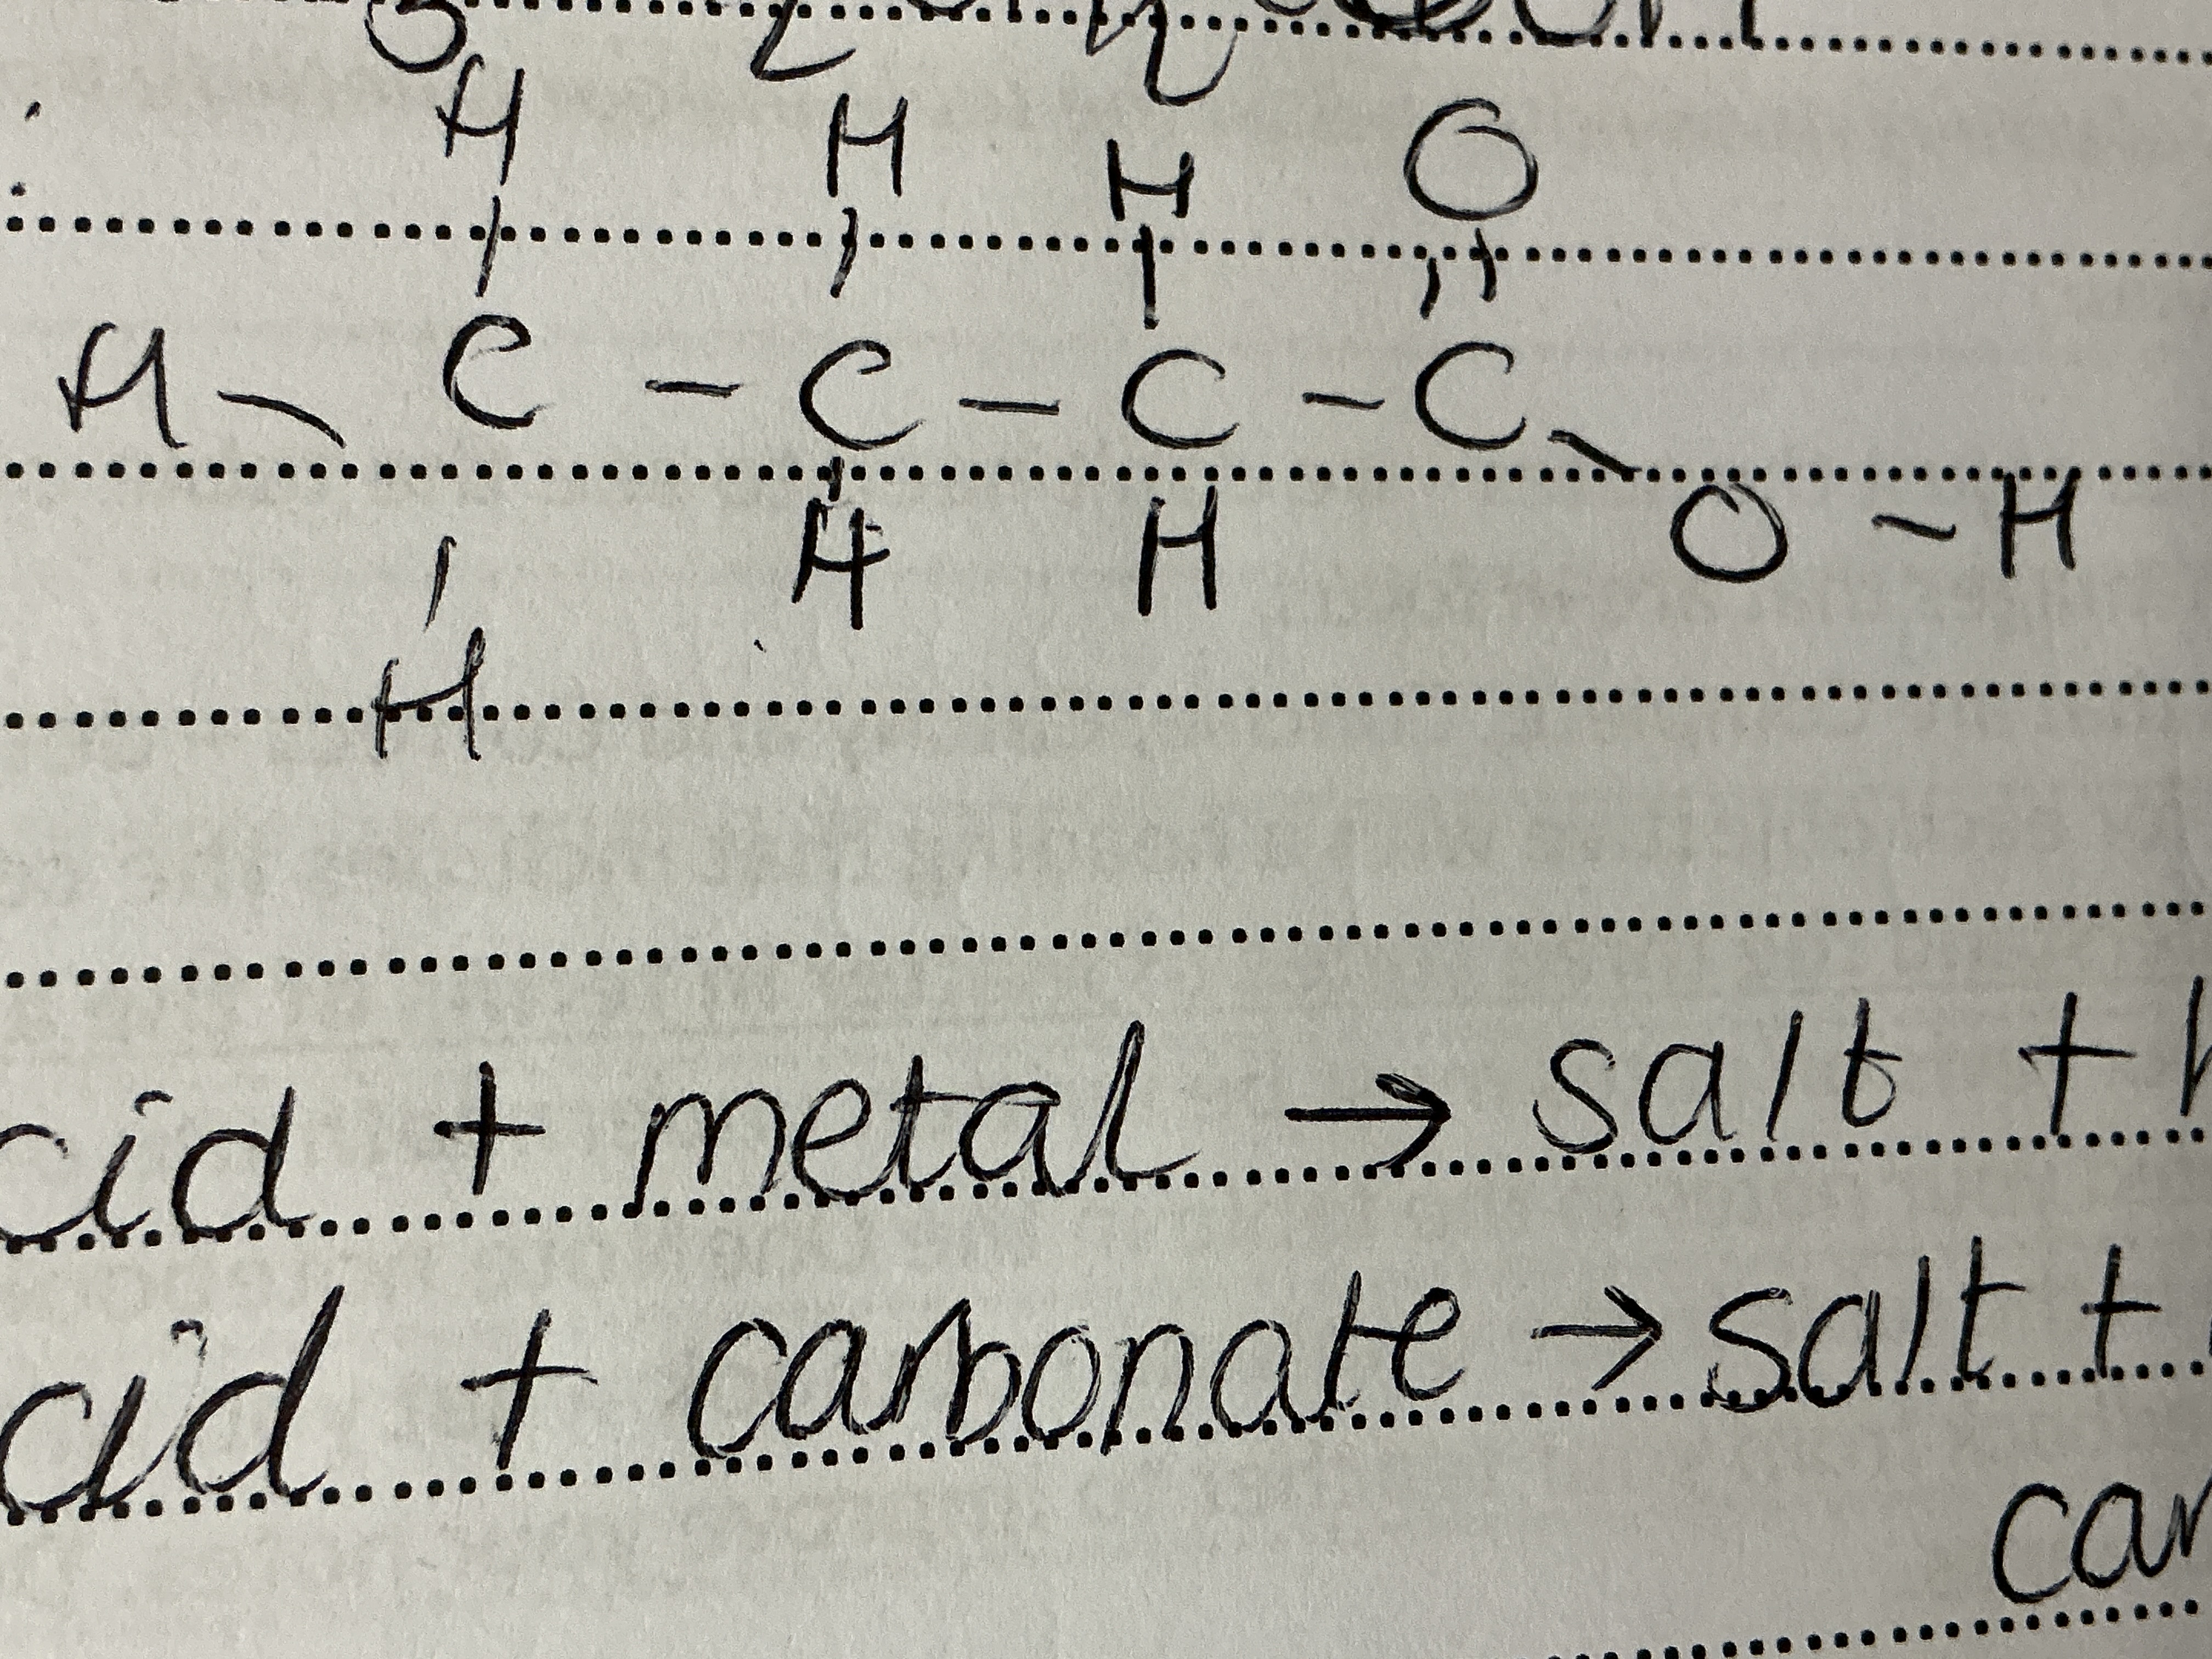 H H H O
H - C - C - C - C
O - H
H H H
cid + metal → salt +
cid + carbonate → salt +
car